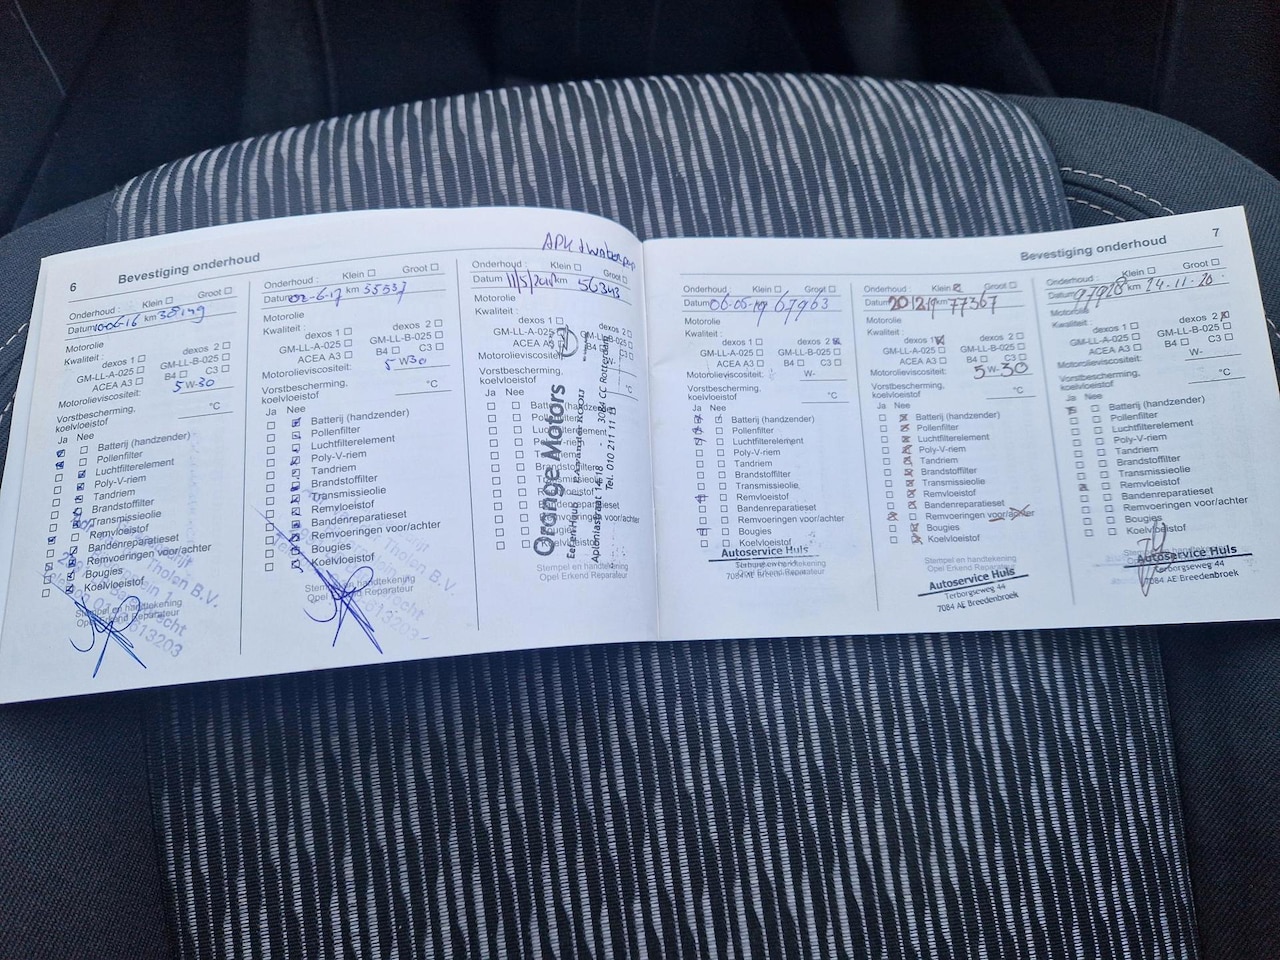 6 Bevestiging onderhoud
Onderhoud : Klein Groot
Datum km
Motorolie
Kwaliteit :
dexos 1 dexos 2
GM-LL-A-025 GM-LL-B-025
ACEA A3 B4 C3
Motorolieviscositeit: 5 W-30
Vorstbescherming, °C
koelvloeistof
Ja Nee
Batterij (handzender)
Pollenfilter
Luchtfilterelement
Poly-V-riem
Tandriem
Brandstoffilter
Transmissieolie
Remvloeistof
Bandenreparatieset
Remvoeringen voor/achter
Bougies
Koelvloeistof
Stempel en handtekening
Opel Erkend Reparateur
Onderhoud : Klein Groot
Datum 02-6-17 km 55537
Motorolie
Kwaliteit :
dexos 1 dexos 2
GM-LL-A-025 GM-LL-B-025
ACEA A3 B4 C3
Motorolieviscositeit: 5 W30
Vorstbescherming, °C
koelvloeistof
Ja Nee
Batterij (handzender)
Pollenfilter
Luchtfilterelement
Poly-V-riem
Tandriem
Brandstoffilter
Transmissieolie
Remvloeistof
Bandenreparatieset
Remvoeringen voor/achter
Bougies
Koelvloeistof
Stempel en handtekening
Opel
Tholen B.V.
613203
APK
Onderhoud : Klein Groot
Datum 11/5/2018 km 56343
Motorolie
Kwaliteit :
dexos 1 dexos 2
GM-LL-A-025
ACEA A3
Motorolieviscositeit:
Vorstbescherming, °C
koelvloeistof
Ja Nee
Orange Motors
Aploniastraat 14-18 3084 CC Rotterdam
Tel. 010 211 11 11
Stempel en handtekening
Opel Erkend Reparateur
Bevestiging onderhoud 7
Onderhoud : Klein Groot
Datum 06-05-19 67963
Motorolie
Kwaliteit :
dexos 1 dexos 2
GM-LL-A-025 GM-LL-B-025
ACEA A3 B4 C3
Motorolieviscositeit : W-
Vorstbescherming, °C
koelvloeistof
Ja Nee
Batterij (handzender)
Pollenfilter
Luchtfilterelement
Poly-V-riem
Tandriem
Brandstoffilter
Transmissieolie
Remvloeistof
Bandenreparatieset
Remvoeringen voor/achter
Bougies
Koelvloeistof
Autoservice Huls
7084 AE Breedenbroek
Onderhoud : Klein Groot
Datum km 77367
Motorolie
Kwaliteit :
dexos 1 dexos 2
GM-LL-A-025 GM-LL-B-025
ACEA A3 B4 C3
Motorolieviscositeit: 5 W-30
Vorstbescherming, °C
koelvloeistof
Ja Nee
Batterij (handzender)
Pollenfilter
Luchtfilterelement
Poly-V-riem
Tandriem
Brandstoffilter
Transmissieolie
Remvloeistof
Bandenreparatieset
Remvoeringen voor/achter
Bougies
Koelvloeistof
Stempel en handtekening
Opel Erkend Reparateur
Autoservice Huls
Terborgseweg 44
7084 AE Breedenbroek
Onderhoud : Klein Groot
Datum 97928 km 24-11-20
Motorolie
Kwaliteit :
dexos 1 dexos 2
GM-LL-A-025 GM-LL-B-025
ACEA A3 B4 C3
Motorolieviscositeit: W-
Vorstbescherming, °C
koelvloeistof
Ja Nee
Batterij (handzender)
Pollenfilter
Luchtfilterelement
Poly-V-riem
Tandriem
Brandstoffilter
Transmissieolie
Remvloeistof
Bandenreparatieset
Remvoeringen voor/achter
Bougies
Koelvloeistof
Autoservice Huls
Terborgseweg 44
7084 AE Breedenbroek